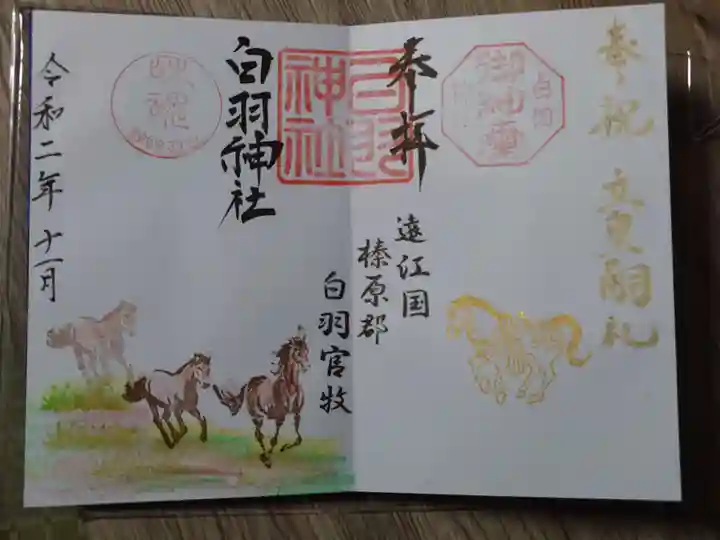 奉祝 立皇嗣礼
奉拝
白羽
神社
遠江国
榛原郡
白羽官牧
白羽神社
令和二年 十一月